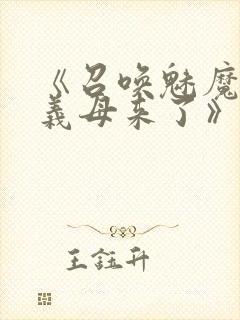 《召唤魅魔
義母来了》
王鈺升